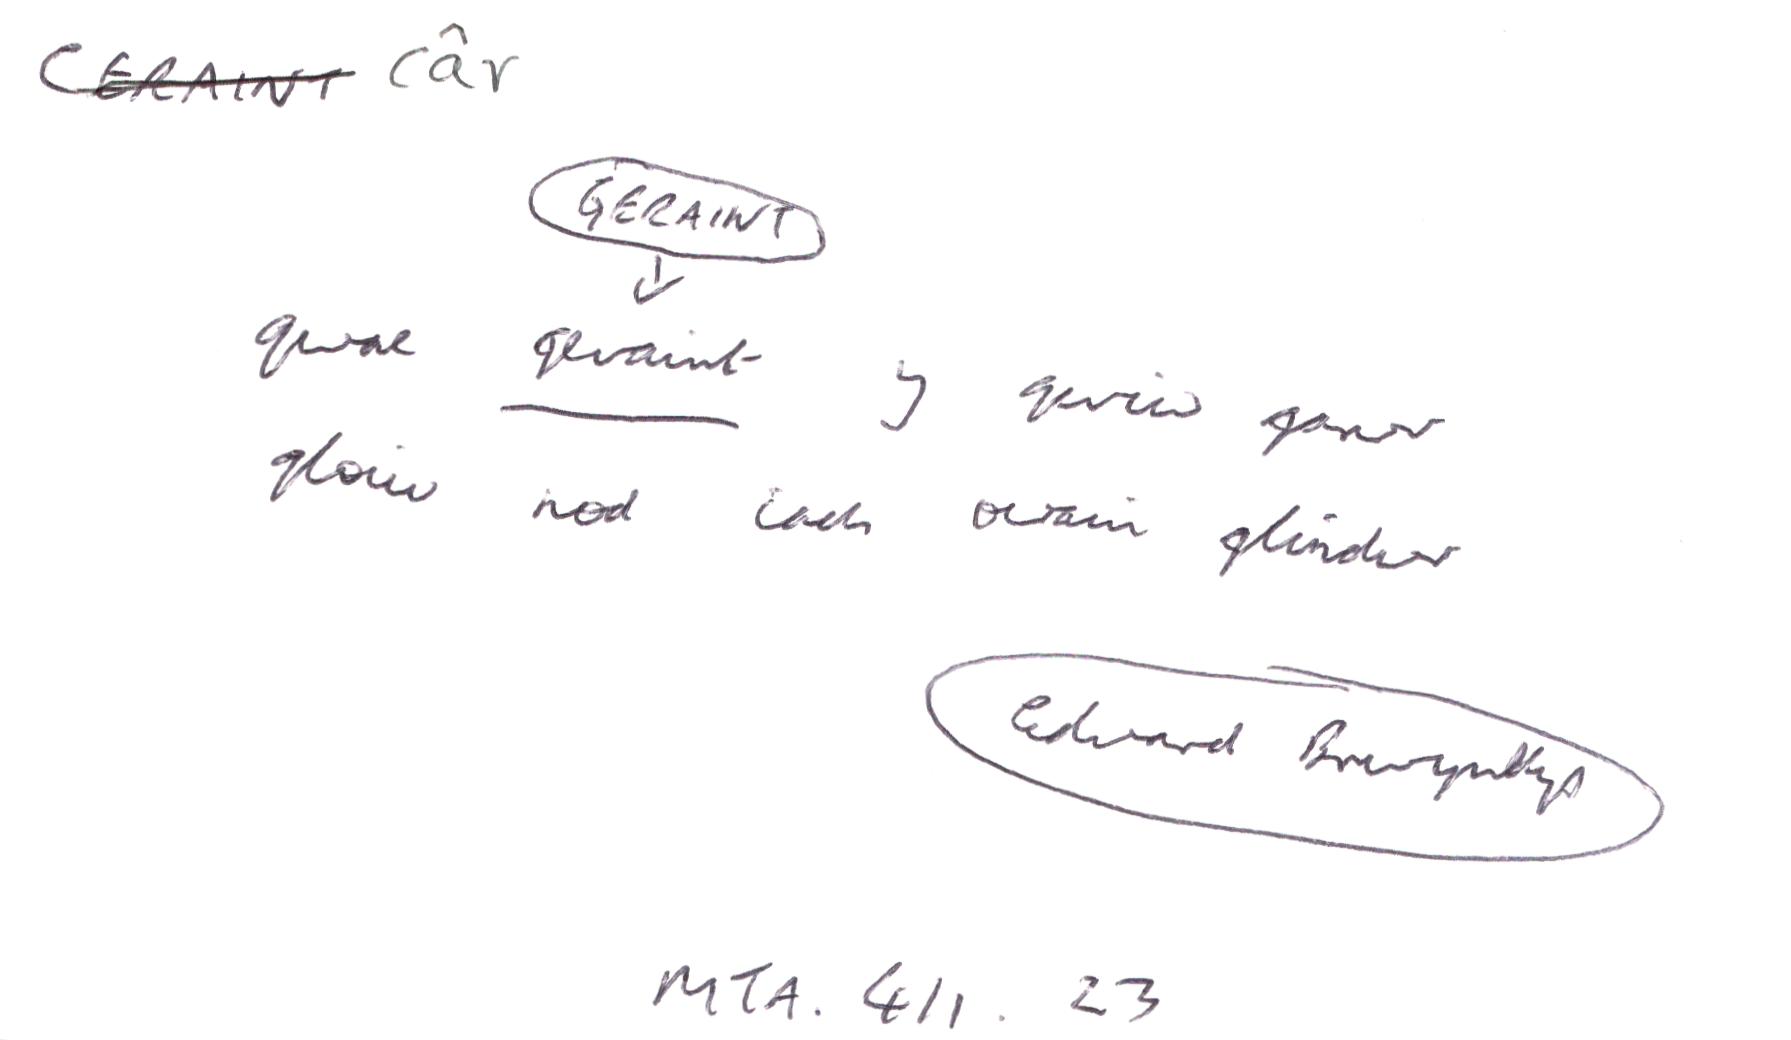 CERAINT câr
GERAINT
gwae geraint y gwiw ganor
gloiw nod iach owain glindwr
Edward Brwynllys
MTA. 4/1. 23